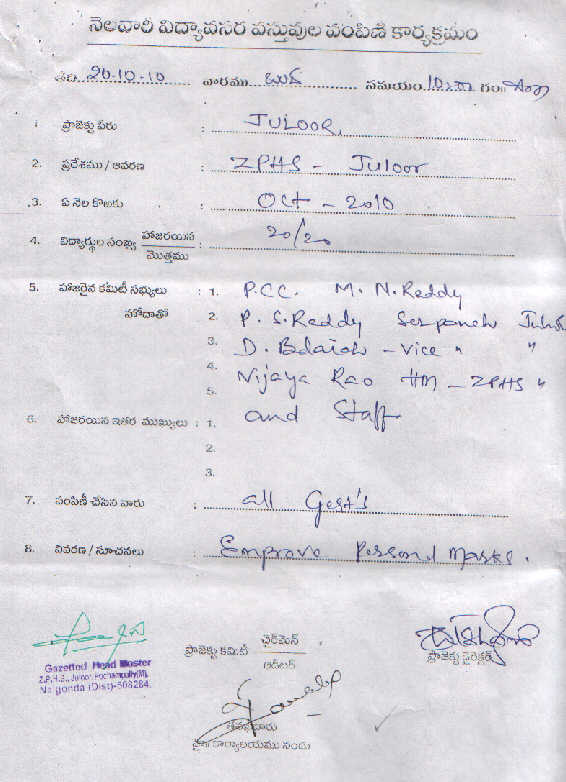 నెలవారీ విద్యావసర వస్తువుల పంపిణి కార్యక్రమం
తేది. 20-10-10 వారము బుధ సమయం. 10.00 గం॥
1 ప్రాజెక్టు పేరు : JULOOR,
2. ప్రదేశము / ఆవరణ : ZPHS - Juloor
3. ఏ నెల కొఱకు : Oct - 2010
4. విద్యార్థుల సంఖ్య హాజరయిన / మొత్తము : 20/20
5. హాజరైన కమిటీ సభ్యులు : 1. P.CC. M. N. Reddy
హోదాతో 2. P. S. Reddy Serpanch
3. D. Bdaioh - Vice " "
4. Nijaya Rao HM - ZPHS "
5.
6. హాజరయిన ఇతర ముఖ్యులు : 1. and Staff
2.
3.
7. పంపిణీ చేసిన వారు : all Gest's
8. వివరణ / సూచనలు : Emprove Personal Marks.
ప్రాజెక్టు కమిటీ ఛైర్‌మెన్ / ఆడిటర్
ప్రాజెక్టు డైరెక్టర్
Gazetted Head Master
Z.P.H.S., Juloor, Pochampally(M),
Nalgonda (Dist)-508284.
ప్రధాన కార్యాలయము నందు